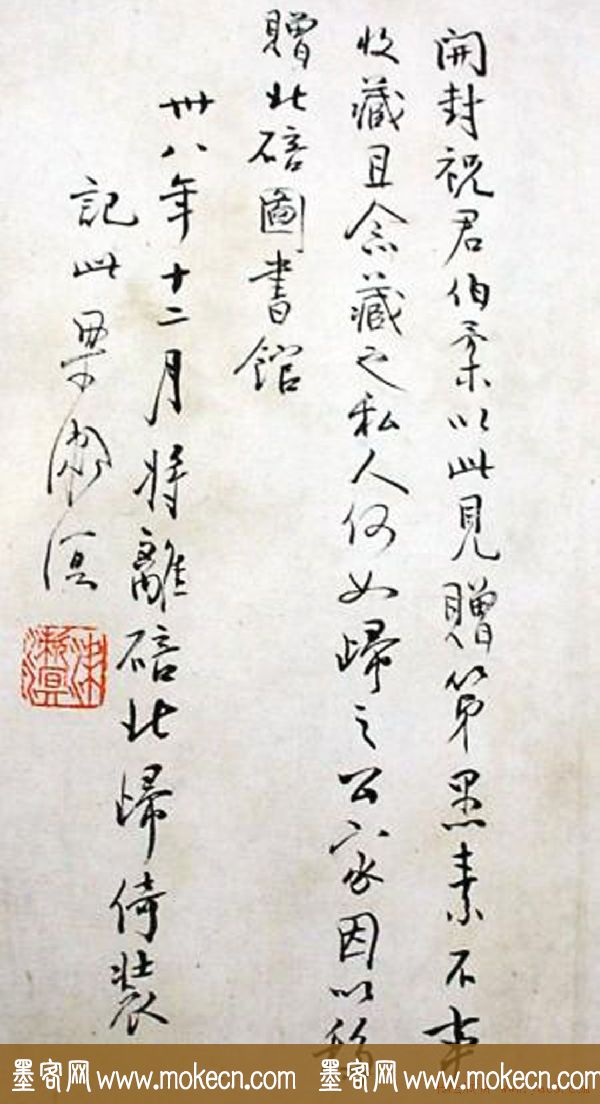 開封祝君伯柔以此見贈第愚素不事
收藏且念藏之私人何如歸之公家因以移
贈北碚圖書館
卅八年十二月將離碚北歸倚裝
記此梁漱溟
梁漱溟
墨客网 www.mokecn.com 墨客网 www.mokecn.com